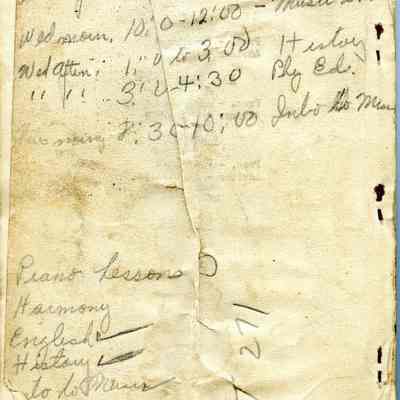 Wed morn, 10:0-12:00 - Music
Wed Aften; 1:0 to 3:00 History
" " 3:0-4:30 Phy Ed.
8:30-10:00 Into to Mus
Piano Lessons
Harmony
English
History
to to Music
271